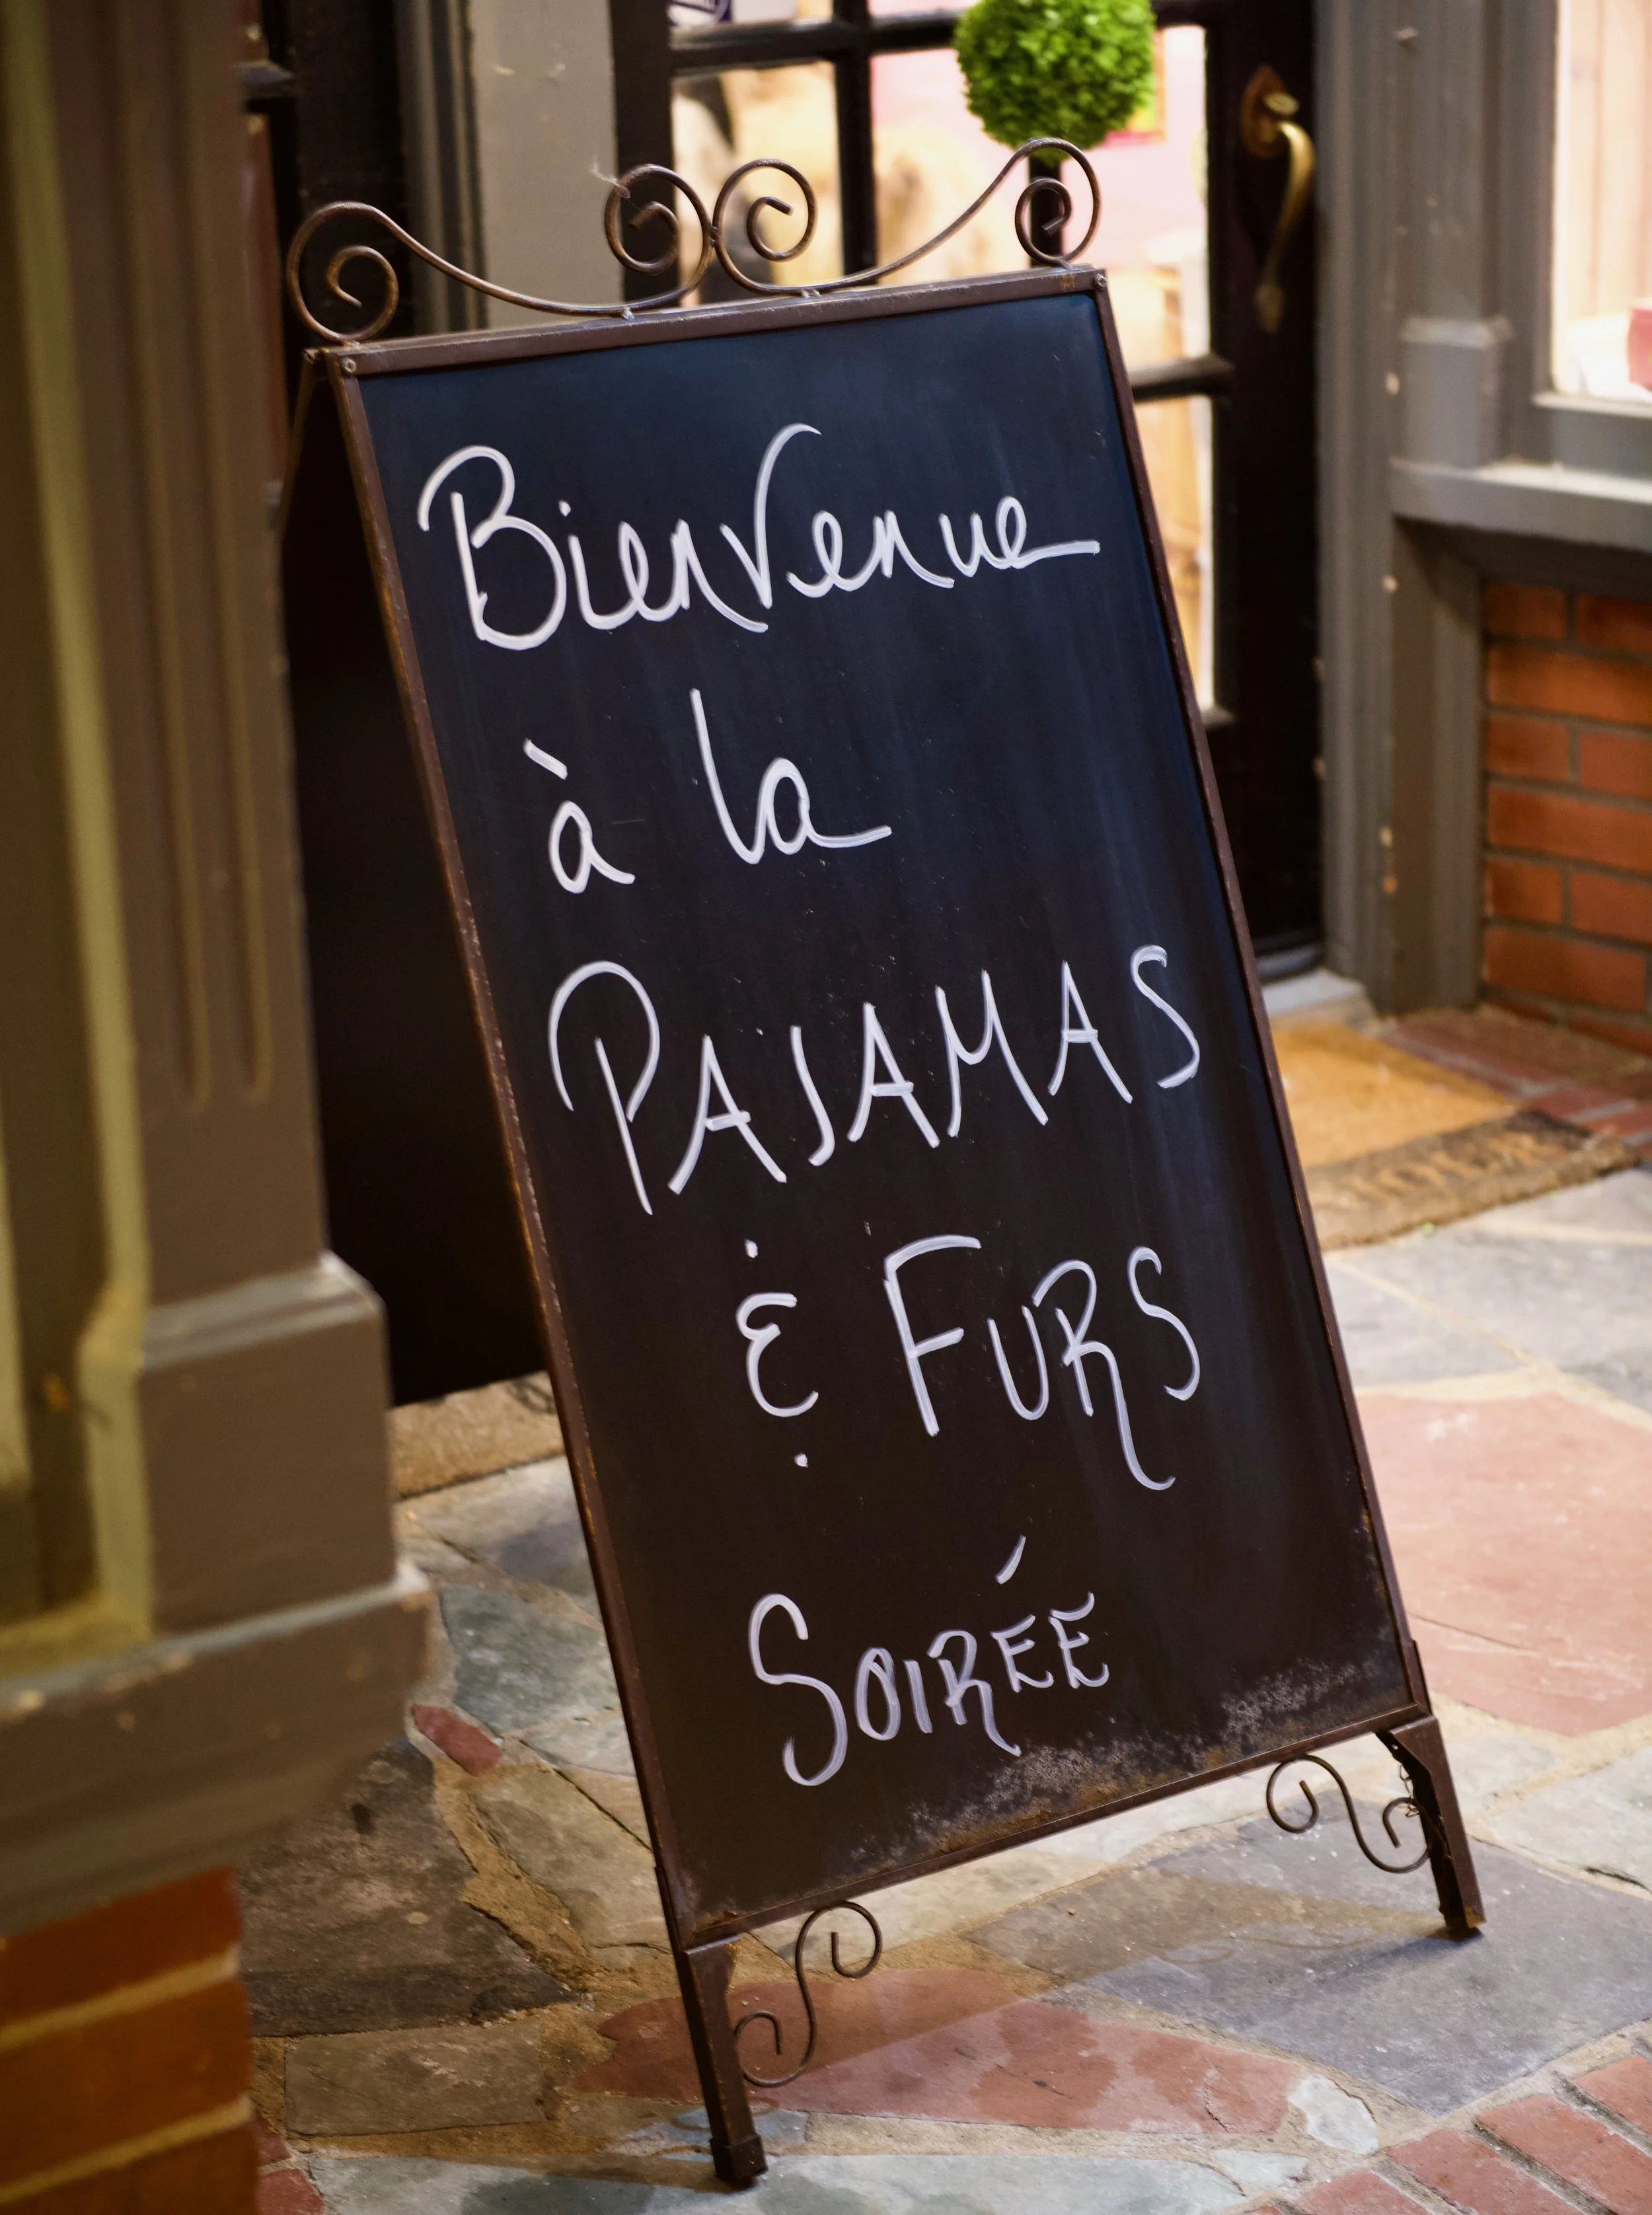 Bienvenue
à la
PAJAMAS
& FURS
SOIRÉE